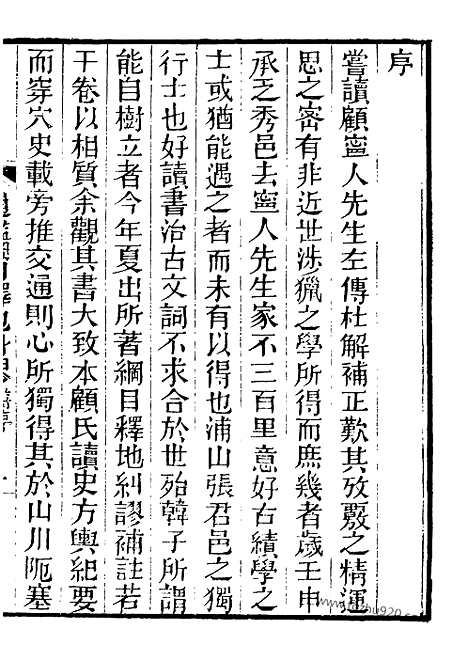 序
嘗讀顧寧人先生左傳杜解補正歎其攷覈之精運
思之密有非近世涉獵之學所得而庶幾者歲壬申
承乏秀邑去寧人先生家不三百里意好古績學之
士或猶能遇之者而未有以得也浦山張君邑之獨
行士也好讀書治古文詞不求合於世殆韓子所謂
能自樹立者今年夏出所著綱目釋地糾謬補註若
干卷以相質余觀其書大致本顧氏讀史方輿紀要
而穿穴史載旁推交通則心所獨得其於山川阨塞